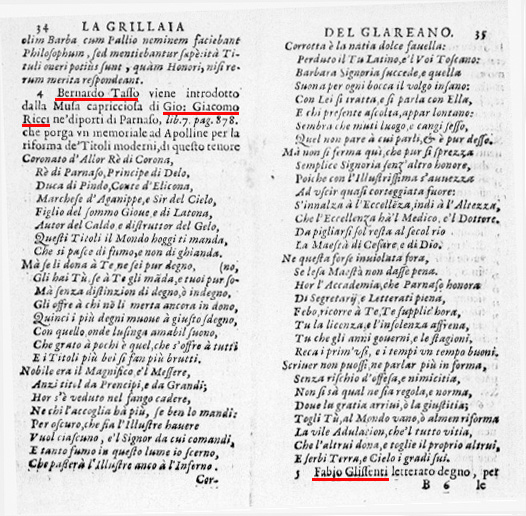 34 LA GRILLAIA
olim Barba cum Pallio neminem faciebant
Philosophum, sed mentiebantur sup&è;ità Ti-
tuli oneri potiùs sunt, quàm Honori, nisi re-
rum merita respondeant.
4 Bernardo Tasso viene introdotto
dalla Musa capricciosa di Gio: Giacomo
Ricci ne'diporti di Parnaso, lib. 7. pag. 878.
che porga vn memoriale ad Apolline per la
riforma de'Titoli moderni, di questo tenore
Coronato d'Allor Rè di Corona,
Rè di Parnaso, Principe di Delo,
Duca di Pindo, Conte d'Elicona,
Marchese d'Aganippe, e Sir del Cielo,
Figlio del sommo Gioue, e di Latona,
Autor del Caldo, e distruttor del Gelo,
Questi Titoli il Mondo hoggi ti manda,
Che si pasce di fumo, e non di ghianda.
Mà se li dona à Te, ne sei pur degno, (no,
Gli hai Tù, se à Te gli màda, e tuoi pur so-
Mà senza distinzion di degno, ò indegno,
Gli offre à chi nò li merta ancora in dono,
Quinci i più degni muoue à giusto sdegno,
Con quello, onde lusinga amabil suono,
Che grato à pochi è quel, che s'offre à tutti
E i Titoli più bei si fan più brutti.
Nobile era il Magnifico, e'l Messere,
Anzi titol da Prencipi, e da Grandi;
Hor s'è veduto nel fango cadere,
Ne chi l'accoglia hà più, se ben lo mandi:
Per oscuro, che sia l'Illustre hauere
Vuol ciascuno, e'l Signor da cui comandi,
E tanto fumo in questo lume io scerno,
Che passerà l'Illustre anco à l'Inferno.
Cor-
DEL GLAREANO. 35
Corrotta è la natia dolce fauella:
Perduto il Tu Latino, e'l Voi Toscano:
Barbara Signoria succede, e quella
Suona per ogni bocca il volgo insano:
Con Lei si tratta, e si parla con Ella,
E chi presente ascolta, appar lontano:
Sembra che muti luogo, e cangi sesso,
Quel non pare à cui parli, & è pur desso.
Mà non si ferma quì, che pur si sprezza
Semplice Signoria senz'altro honore,
Poiche con l'Illustrissima s'auuezza
Ad vscir quasi corteggiata fuore:
S'innalza à l'Eccellèza, indi à l'Altezza,
Che l'Eccellenza hà'l Medico, e'l Dottore.
Da pigliarsi sol resta al secol rio
La Maestà di Cesare, e di Dio.
Ne questa forse inuiolata fora,
Se lesa Maestà non dasse pena.
Hor l'Accademia, che Parnaso honora
Di Segretarij, e Letterati piena,
Febo, ricorre à Te, Te supplic'hora,
Tu la licenza, e l'insolenza affrena,
Tu che gli anni gouerni, e le stagioni,
Reca i prim'vsi, e i tempi vn tempo buoni.
Scriuer non puossi, ne parlar più in forma,
Senza rischio d'offesa, e nimicitia,
Non si sà qual ne sia regola, e norma,
Doue la gratia arriui, ò la giustitia;
Togli Tù, al Mondo vano, ò almen riforma
La vile Adulation, che'l tutto vitia,
Che l'altrui dona, e toglie il proprio altrui,
E serbi Terra, e Cielo i gradi sui.
5 Fabio Glissenti letterato degno, per
B 6 le